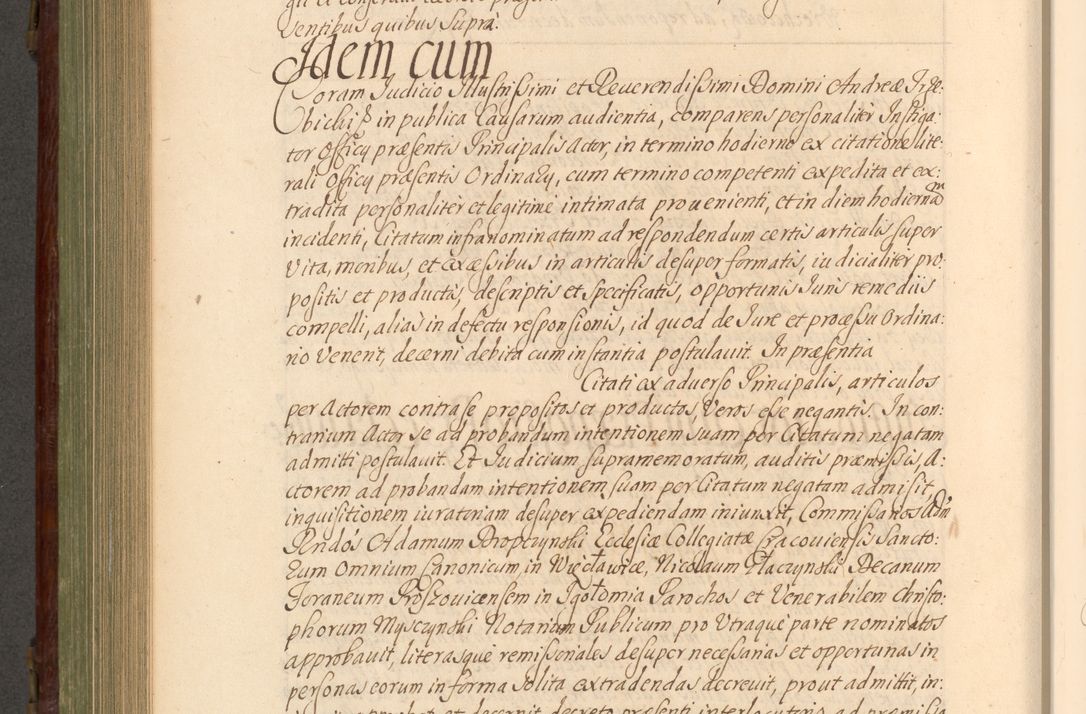 Ventibus quibus supra.
Idem cum
Coram Judicio Illustrissimi et Reuerendissimi Domini Andreæ Trze-
bicki in publica Causarum audientia, comparens personaliter Instiga:
tor Officij præsentis Principalis Actor, in termino hodierno ex citatione lite:
rali Officij præsentis Ordinarij, cum termino competenti expedita et ex:
tradita personaliter et legitimè intimata prouenienti, et in diem hodiernam
incidenti, Citatum infranominatum ad respondendum certis articulis super
Vita, moribus, et excæssibus in articulis desuper formatis, iudicialiter pro
positis et productis, descriptis et specificatis, opportunis Juris remediis
compelli, alias in defectu responsionis, id quod de Jure et processu Ordina:
rio Venerit, decerni debita cum instantia postulauit. In præsentia
Citati ex aduerso Principalis, articulos
per Actorem contra se propositos et productos, Veros esse negantis. In con:
trarium Actor se ad probandum intentionem suam per Citatum negatam
admitti postulauit. Et Judicium supramemoratum, auditis præmissis, A:
ctorem ad probandam intentionem suam per Citatum negatam admisit,
inquisitionem iuratoriam desuper expediendam iniunxit, Commissarios Adm
Rndos Adamum Bropczynski Ecclesiæ Collegiatæ Cracouiensis Sancto:
rum Omnium Canonicum, in Więcławice, Nicolaum Płaczynski Decanum
Foraneum Proszouicensem in Igołomia Parochos et Venerabilem Christo:
phorum Mysczynski Notarium Publicum pro Utraque parte nominatos
approbauit, literasque remissoriales desuper necessarias et opportunas in
personas eorum in forma solita extradendas decreuit, prout admittit, in: